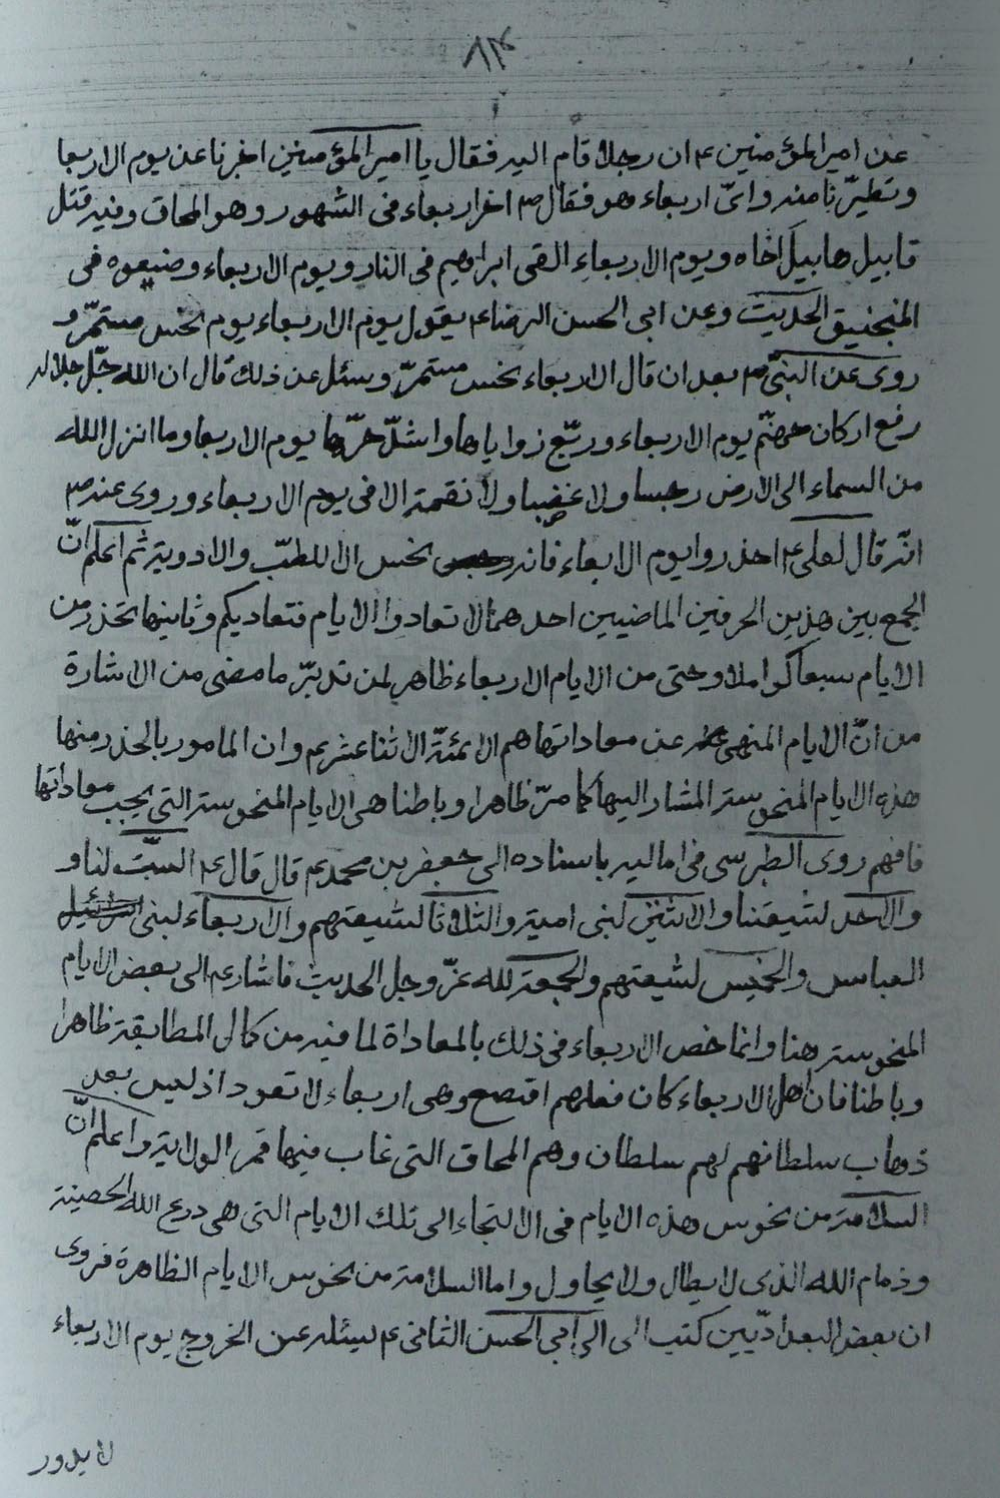 ٨٣
عن امير المؤمنين ع ان رجلا قام اليه فقال يا امير المؤمنين اخبرنا عن يوم الاربعا
وتطيّرنا منه وائ اربعاء هو فقال ص اخر اربعاء فى الشهور وهو المحاق وفيه قتل
قابيل هابيل اخاه ويوم الاربعاء القى ابراهيم فى النار ويوم الاربعاء وضعوه فى
المنجنيق الحديث وعن ابى الحسن الرضا ع يقول يوم الاربعاء يوم نحس مستمرّ و
روى عن النبىّ ص بعد ان قال الاربعاء نحس مستمرّ وسئل عن ذلك قال ان الله جّل جلاله
رفع اركان جهنّم يوم الاربعاء وربّع زواياها واشدّ حرّها يوم الاربعا وما انزل الله
من السماء الى الارض رجسا ولا غضبا ولا نقمة الا فى يوم الاربعاء وروى عنه ص
انّه قال لعلى ع احذروا يوم الابعاء فانه نحس الا للطبّ والادوية ثم اعلم انّ
الجمع بين هذين الحرفين الماضيين احدهما لا تعادوا الايام فتعاديكم وثانيها تحذر من
الايام سبعا كواملا وحتى من الايام الاربعاء ظاهر لمن تدبّر ما مضى من الاشارة
من انّ الايام المنهى عن معاداتها هم الائمّة الاثنا عشر ع وان المامور بالحذر منها
هذه الايام المنحوسة المشار اليها كما مرّ ظاهرا وباطنا هى الايام المنحوسة التى يجب معاداتها
فافهم روى الطبرسى فى اماليه باسناده الى جعفر بن محمد ع قال قال ع السبّت لنا و
والاحد لشيعتنا والاثنين لبنى امية والثلاثا لشيعتهم والاربعاء لبنى
العباس والخميس لشيعتهم والجمعة لله عزّ وجل الحديث فاشار ع الى بعض الايام
المنحوسة هنا وانما خص الاربعاء فى ذلك بالمعاداة لما فيه من كمال المطابقة ظاهرا
وباطنا فان اهل الاربعاء كان فعلهم وهى اربعاء لا تعود اذ ليس بعد
ذهاب سلطانهم لهم سلطان وهم المحاق التى غاب فيها قمر الولاية واعلم انّ
السلامة من نحوس هذه الايام فى الالتجاء الى تلك الايام التى هى درع الله الحصينة
وذمام الله الذى لا يطال ولا يحاول واما السلامة من نحوس الايام الظاهرة فروى
ان بعض البغداديّين كتب الى الى ابى الحسن الثانى ع ليسئله عن الخروج يوم الاربعاء
لا يدور